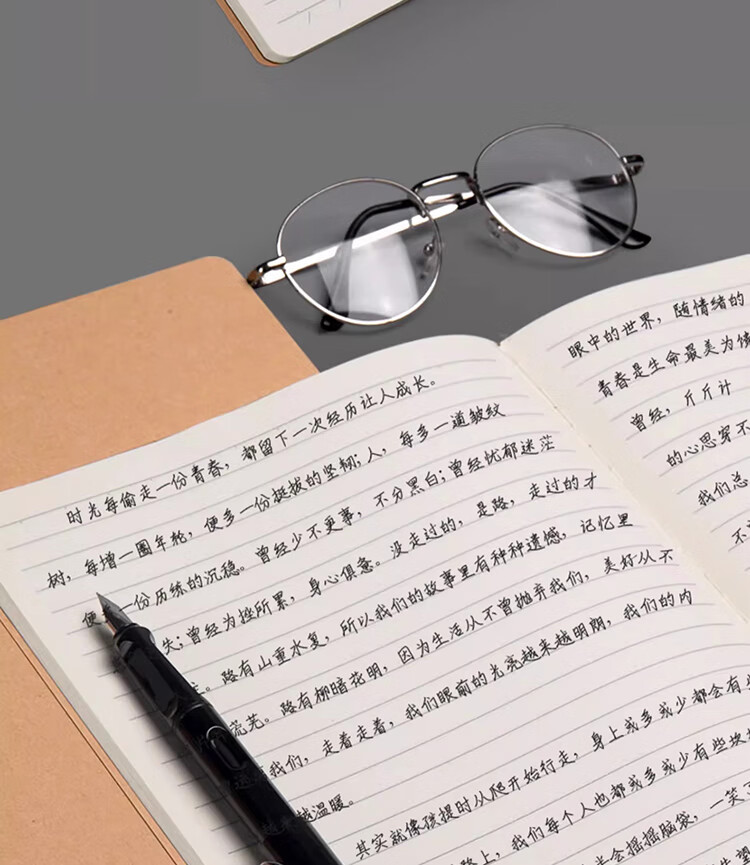 时光每偷走一份青春，都留下一次经历让人成长。
树，每增一圈年轮，便多一份挺拔的坚韧；人，每多一道皱纹
便 一份历练的沉稳。曾经少不更事，不分黑白；曾经忧郁迷茫
失；曾经为 所累，身心俱 。没走过的，是路，走过的才
。路有山重水复，所以我们的故事里有种种遗憾，记忆里
荒芜。路有柳暗花明，因为生活从不曾抛弃我们，美好从不
我们，走着走着，我们眼前的光亮越来越明朗，我们的内
越温暖。
其实就像孩提时从爬开始行走，身上或多或少都会有
路上，我们每个人也都或多或少有些
会摇摇脑袋，一笑
眼中的世界，随情绪的
青春是生命最美
曾经，斤斤计
的心思穿不
我们总
不